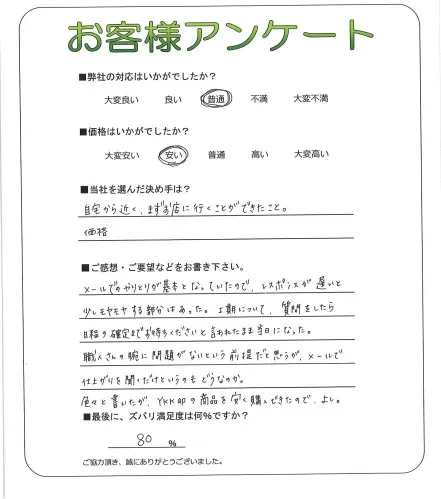 お客様アンケート
■弊社の対応はいかがでしたか？
大変良い 良い 普通 不満 大変不満
■価格はいかがでしたか？
大変安い 安い 普通 高い 大変高い
■当社を選んだ決め手は？
自宅から近く、まずお店に行くことができたこと。
価格
■ご感想・ご要望などをお書き下さい。
メールでのやりとりが基本となっていたので、レスポンスが遅いと
少しモヤモヤする部分はあった。工期について、質問をしたら
日程の確定までお待ちくださいと言われたまま当日になった。
職人さんの腕に問題がないという前提だと思うが、メールで
仕上がりを聞くだけというのもどうなのか。
色々と書いたが、YKK APの商品を安く購入できたので、よし。
■最後に、ズバリ満足度は何%ですか？
80 %
ご協力頂き、誠にありがとうございました。